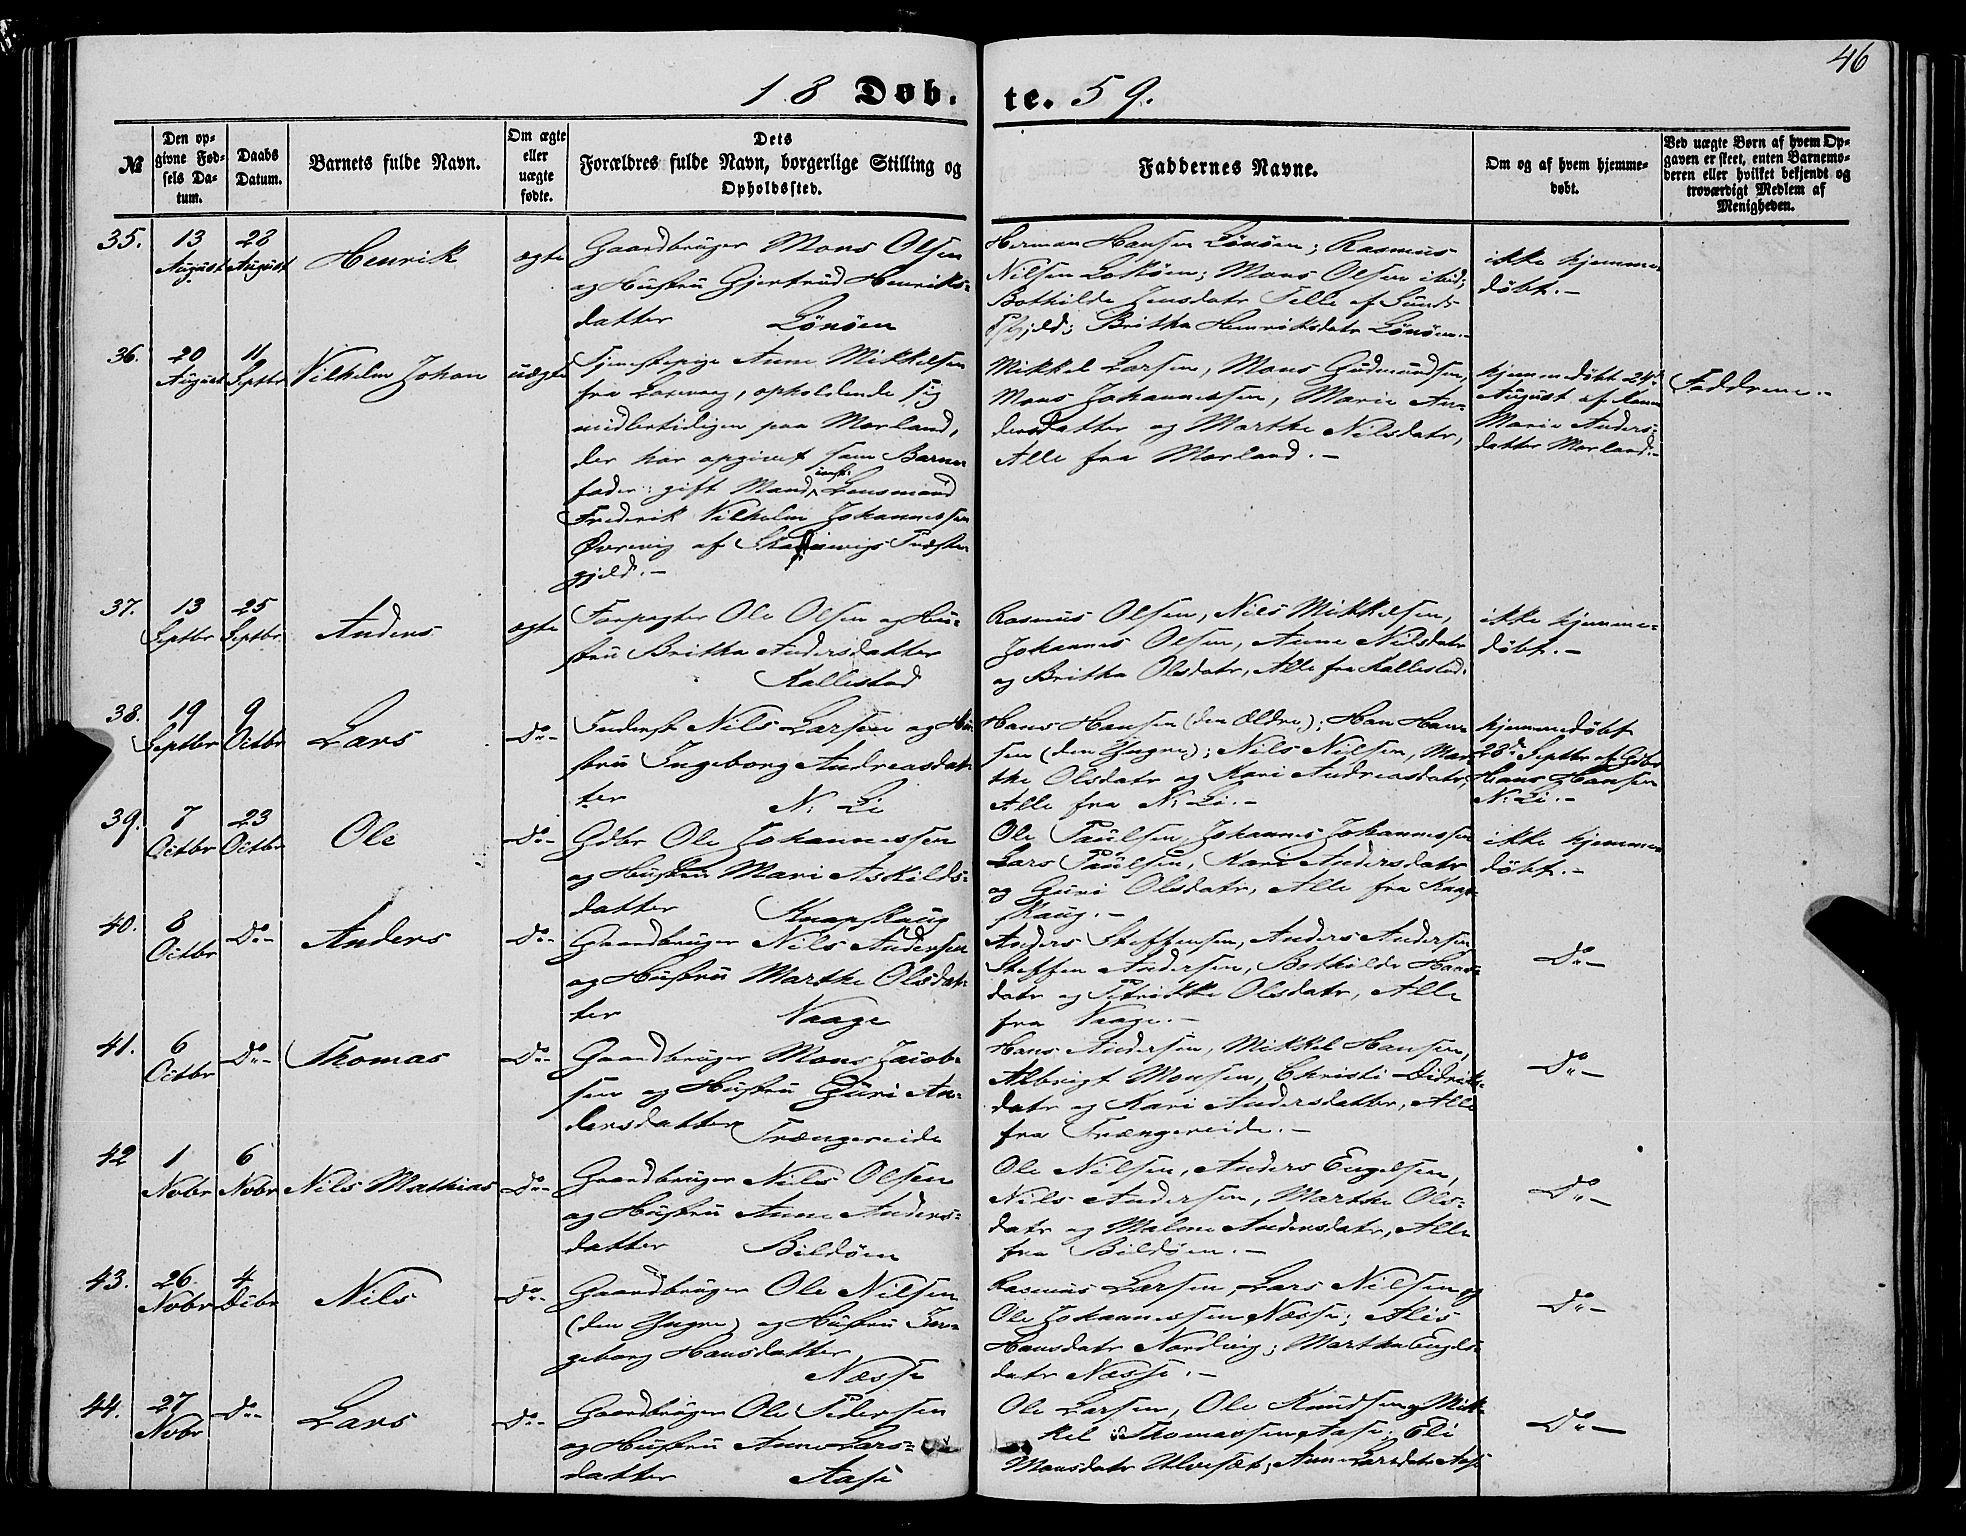 46
18 Døb. te. 59.
№
Den op-
givne Fød-
sels Da-
tum.
Daabs
Datum.
Barnets fulde Navn.
Om ægte
eller
uægte
fødte.
Dets
Forældres fulde Navn, borgerlige Stilling og
Opholdssted.
Faddernes Navne.
Om og af hvem hjemme-
døbt.
Ved uægte Børn af hvem Op-
gaven er skeet, enten Barnemo-
deren eller hvilket bekjendt og
troværdigt Medlem af
Menigheden.
35.
13
August
28
August
Henrik
ægte
Gaardbruger Mons Olsen
og Hustru Gjertrud Henriks-
datter Lønøen
Herman Hansen Lønøen; Rasmus
Nilsen Lokøen; Mons Olsen ibid;
Bothilde Jensdatr Telle af Sunds
Pgjeld; Britha Henriksdatr Lønøen.-
ikke hjemme-
døbt.-
36.
20
August
11
Septbr
Vilhelm Johan
uægte
Tjenestepige Anne Mikkelsen
fra , opholdende sig
midlertidigen paa Morland,
der har opgivet som Barne-
fader: gift Mand, const. Lensmand
Frederik Vilhelm Johannessen
Øvrevig af Præste-
gjeld.-
Mikkel Larsen, Mons Gudmundsen,
Mons Johannessen, Marie An-
dersdatter og Marthe Nilsdatr,
Alle fra Morland.-
hjemmedøbt 24d
August af
Marie Anders-
datter Morland.-
Faddrene.-
37.
13
Septbr
25
Septbr
Anders
ægte
Forpagter Ole Olsen og Hu-
stru Britha Andersdatter
Kallestad
Rasmus Olsen, Nils Mikkelsen,
Johannes Olsen, Anne Nilsdatr
og Britha Olsdatr, Alle fra Kallestad.
ikke hjemme-
døbt.-
38.
19
Septbr
9
Octbr
Lars
Do-
Inderst Nils Larsen og Hu-
stru Ingeborg Andreasdat-
ter N: Li
Hans Hansen (den Ældre); Han Han-
sen (den Yngre); Nils Nilsen, Mar-
the Olsdatr og Kari Andreasdatr,
Alle fra N: Li.-
hjemmedøbt
23d Septbr af Gdbr
Hans Hansen
N: Li.-
39.
7
Octbr
23
Octbr
Ole
Do-
Gdbr Ole Johannessen
og Hustru Mari Askilds-
datter Knapskaug
Ole Paulsen, Johannes Johannessen
Lars Paulsen, Kari Andersdatr
og Guri Olsdatr, Alle fra Knap-
skaug.-
ikke hjemme
døbt.-
40.
8
Octbr
Do-
Anders
Do-
Gaardbruger Nils Andersen
og Hustru Marthe Olsdat-
ter Vaage
Anders Steffensen, Anders Andersen
Steffen Andersen, Bothilde Hans-
datr og Petrikke Olsdatr, Alle
fra Vaage.-
Do-
41.
6
Octbr
Do-
Thomas
Do-
Gaardbruger Mons Jacob-
sen og Hustru Guri An-
dersdatter Trængereide
Hans Andersen, Mikkel Hansen,
Albrigt Monsen, Christi Didriks-
datr og Kari Andersdatter, Alle
fra Trængereide.-
Do-
42
1
Novbr
6
Novbr
Nils Mathias
Do-
Gaardbruger Nils Olsen
og Hustru Anne Anders-
datter Bildøen
Ole Nilsen, Anders Engelsen,
Nils Andersen, Marthe Ols-
datr og Malene Andersdatr, Alle
fra Bildøen.-
Do-
43.
26
Novbr
4
Decbr
Nils
Do-
Gaardbruger Ole Nilsen
(den Yngre) og Hustru In-
geborg Hansdatter
Næsse
Rasmus Larsen, Lars Nilsen og
Ole Johannessen Næsse; Alis
Hansdatr Nordvig; Martha Engels-
datr Næsse.-
Do-
44.
27
Novbr
Do-
Lars
Do-
Gaardbruger Ole Pedersen
og Hustru Anne Lars-
datter Aase
Ole Larsen, Ole Knudsen, Mik-
kel Thomassen Aase; Eli
Monsdatr Ulvesæt; Anne Larsdatr Aase
Do-